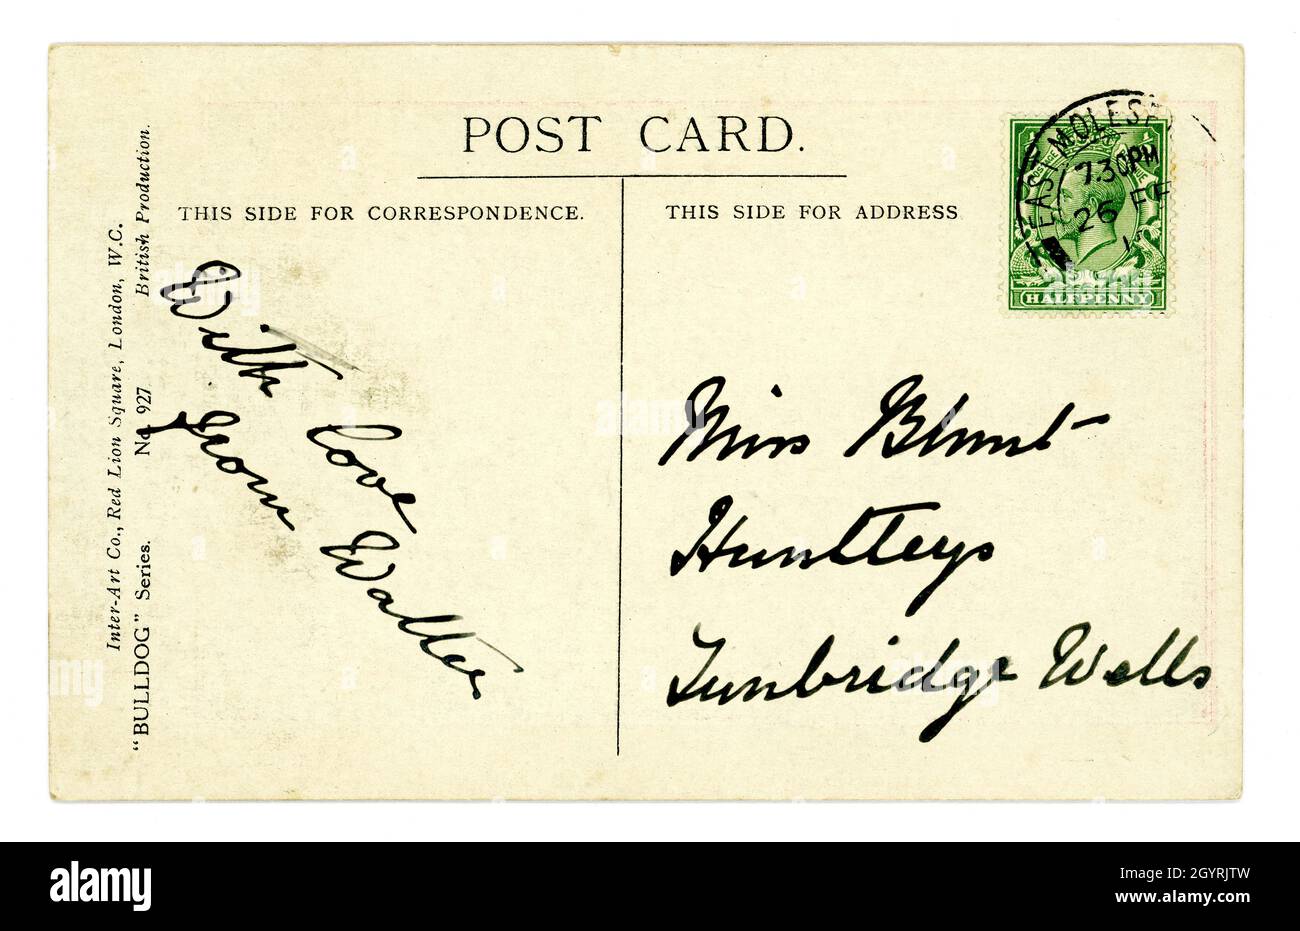 POST CARD.
THIS SIDE FOR CORRESPONDENCE.
THIS SIDE FOR ADDRESS
With love
from Walter
Miss Blunt
Huntleys
Tunbridge Wells
Inter-Art Co., Red Lion Square, London, W.C.
"BULLDOG" Series. No. 927 British Production.
7.30PM
26 FE
HALFPENNY
alamy
Image ID: 2GYRJTW
www.alamy.com